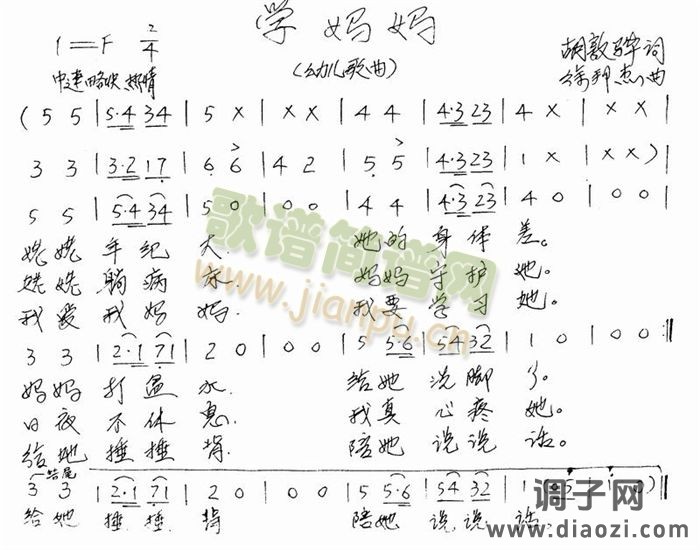 学妈妈
(幼儿歌曲)
1=F 2/4
中速略快 热情
胡敦骅词
徐邦杰曲
(5 5 | 5·4 34 | 5 X | X X | 4 4 | 4·3 23 | 4 X | X X |
3 3 | 3·2 17 | 6 6 | 4 2 | 5 5 | 4·3 23 | 1 X | X X)
5 5 | 5·4 34 | 5 0 | 0 0 | 4 4 | 4·3 23 | 4 0 | 0 0 |
姥姥年纪大. 她的身体差。
姥姥躺病床. 妈妈守护她。
我爱我妈妈. 我要学习她。
3 3 | 2·1 71 | 2 0 | 0 0 | 5 5·6 | 54 32 | 1 0 | 0 0 :||
妈妈打盆水. 给她洗脚了。
日夜不休息. 我真心疼她。
给她捶捶背. 陪她说说话。
结尾
3 3 | 2·1 71 | 2 0 | 0 0 | 5 5·6 | 54 32 | 1
给她捶捶背 陪她说说话.
歌谱简谱网
www.jianpu.cn
调子网
www.diaozi.com